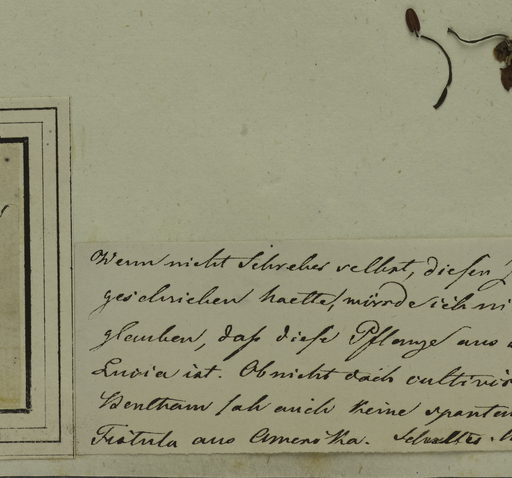 Wenn nicht Schreber selbst, diesen
geschrieben haette, würde ich ni
glauben, daß diese Pflanze aus
Lucia ist. Ob nicht doch cultivir
Bentham sah auch keine spontan
Fistula aus America. Schultes.